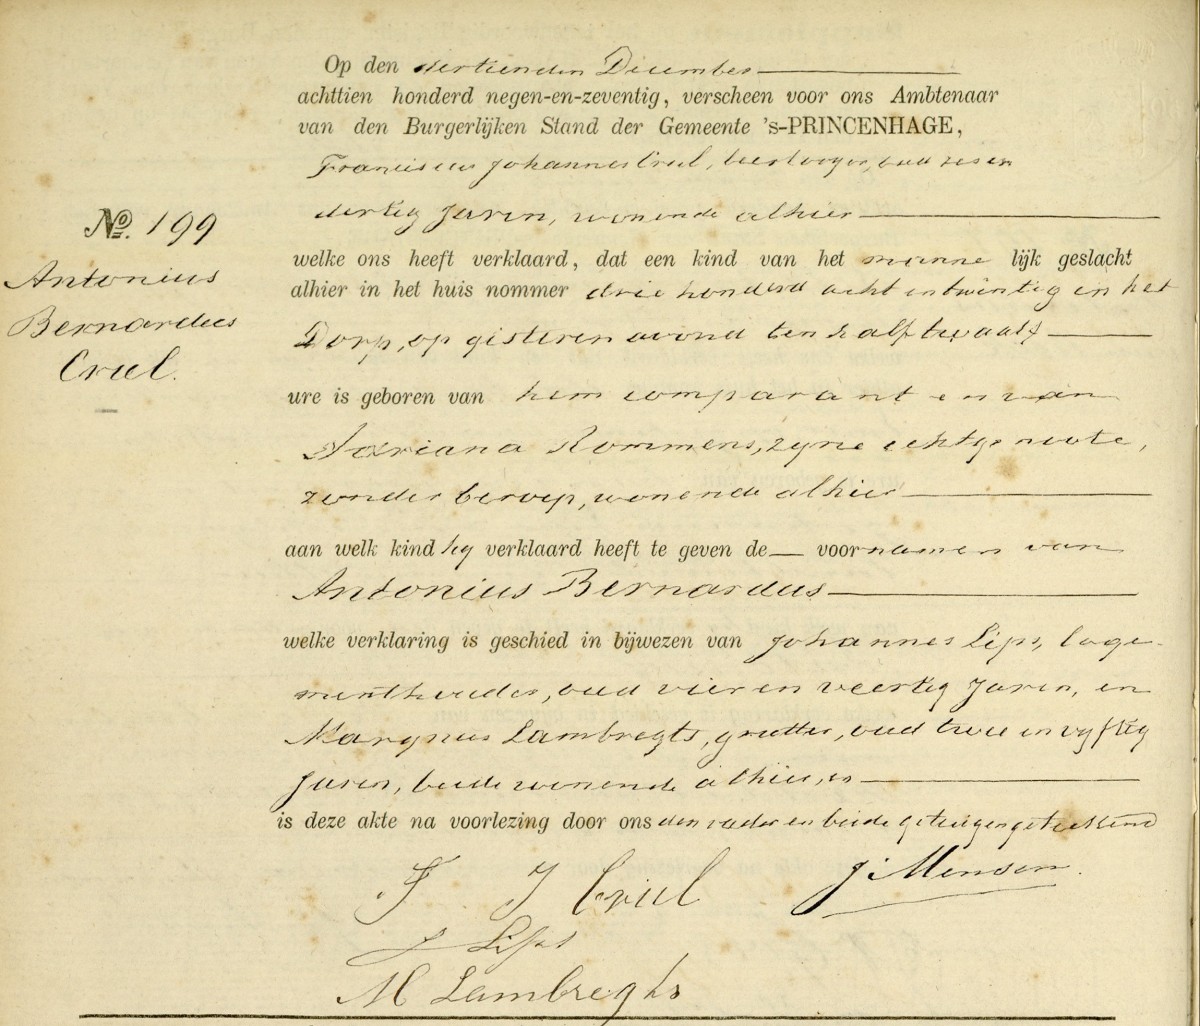 Op den dertienden December
achttien honderd negen-en-zeventig, verscheen voor ons Ambtenaar
van den Burgerlijken Stand der Gemeente 's-PRINCENHAGE,
Franciscus Johannes Criel, leerlooyer, oud zes en
dertig Jaren, wonende alhier
No. 199
welke ons heeft verklaard, dat een kind van het manne lijk geslacht
Antonius
alhier in het huis nommer drie honderd acht en twintig in het
Bernardus
Dorp, op gisteren avond ten half twaalf
Criel.
ure is geboren van hem comparant en van
Adriana Rommens, zyne echtgenoote,
zonder beroep, wonende alhier
aan welk kind hy verklaard heeft te geven de voornamen van
Antonius Bernardus
welke verklaring is geschied in bijwezen van Johannes Lips, loge-
menthouder, oud vier en veertig Jaren, en
Marynus Lambregts, grutter, oud twee en vyftig
Jaren, beide wonende alhier, en
is deze akte na voorlezing door ons den vader en beide getuigen geteekend
F J Criel J. Mensen.
J Lips
M Lambreghs